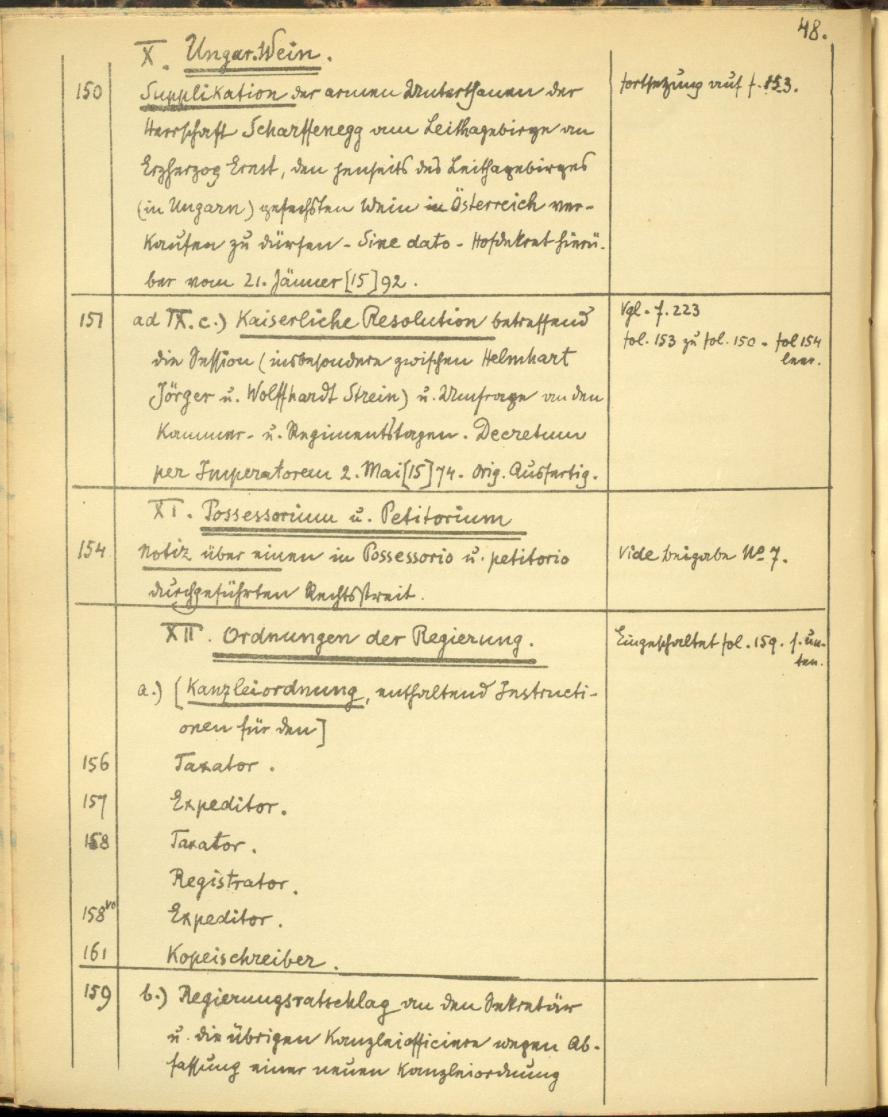 48.
X. Ungar. Wein.
150 Supplikation der armen Unterthanen der
Fortsetzung auf f. 153.
Herrschaft Scharffenegg am Leithagebirge an
Erzherzog Ernst, den jenseits des Leithagebirges
(in Ungarn) gefechsten Wein in Österreich ver-
kaufen zu dürfen - Sine dato - Hofdekret hierü-
ber vom 21. Jänner [15]92.
151 ad IX. c.) Kaiserliche Resolution betreffend
Vgl. f. 223
fol. 153 zu fol. 150 - fol 154
leer.
die Session (insbesondere zwischen Helmhart
Jörger u. Wolffhardt Strein) u. Umfrage an den
Kammer- u. Regimentstagen. Decretum
per Imperatorem 2. Mai [15]74. Orig. Ausfertig.
XI. Possessorium u. Petitorium
154 Notiz über einen in Possessorio u. petitorio
Vide Beigabe No 7.
durchgeführten Rechtsstreit.
XII. Ordnungen der Regierung.
Eingeschaltet fol. 159. s. un-
ten.
a.) [Kanzleiordnung, enthaltend Instructi-
onen für den]
156 Taxator.
157 Expeditor.
158 Taxator.
Registrator.
158vo Expeditor.
161 Kopeischreiber.
159 b.) Regierungsratschlag an den Sekretär
u. die übrigen Kanzleiofficiere wegen Ab-
fassung einer neuen Kanzleiordnung